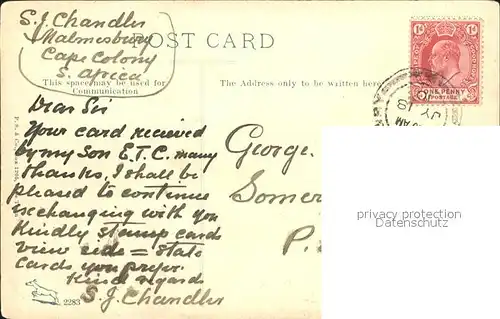 S. J. Chandler
Malmesbury
Cape Colony
S. Africa
POST CARD
This space may be used for
Communication
The Address only to be written here
1d 1d
ONE PENNY
POSTAGE
JY 18
AM
Dear Sir
Your card received
by my Son E.T.C. many
thanks, I shall be
pleased to continue
exchanging with you
Kindly stamp cards
view side = State
Cards you prefer.
Kind regards
S. J. Chandler
2283
George.
Somer
P.
privacy protection
Datenschutz